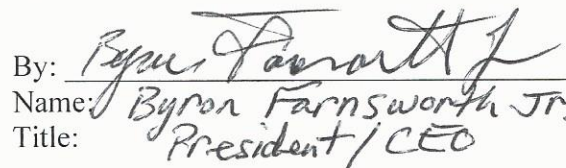 By: Byron Farnsworth Jr
Name: Byron Farnsworth Jr.
Title: President / CEO